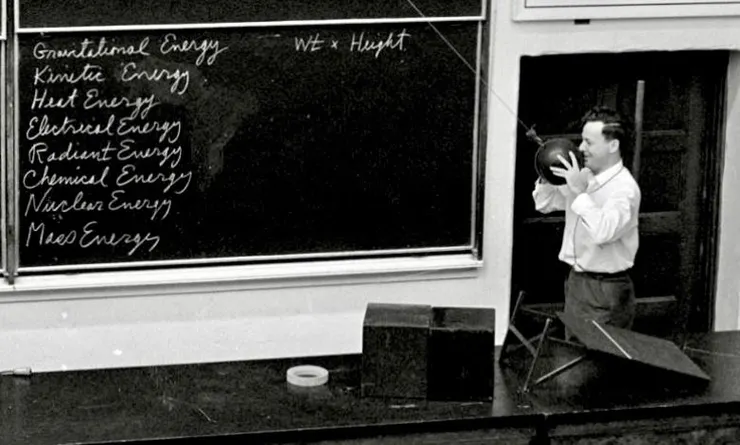 Gravitational Energy Wt x Height
Kinetic Energy
Heat Energy
Electrical Energy
Radiant Energy
Chemical Energy
Nuclear Energy
Mass Energy